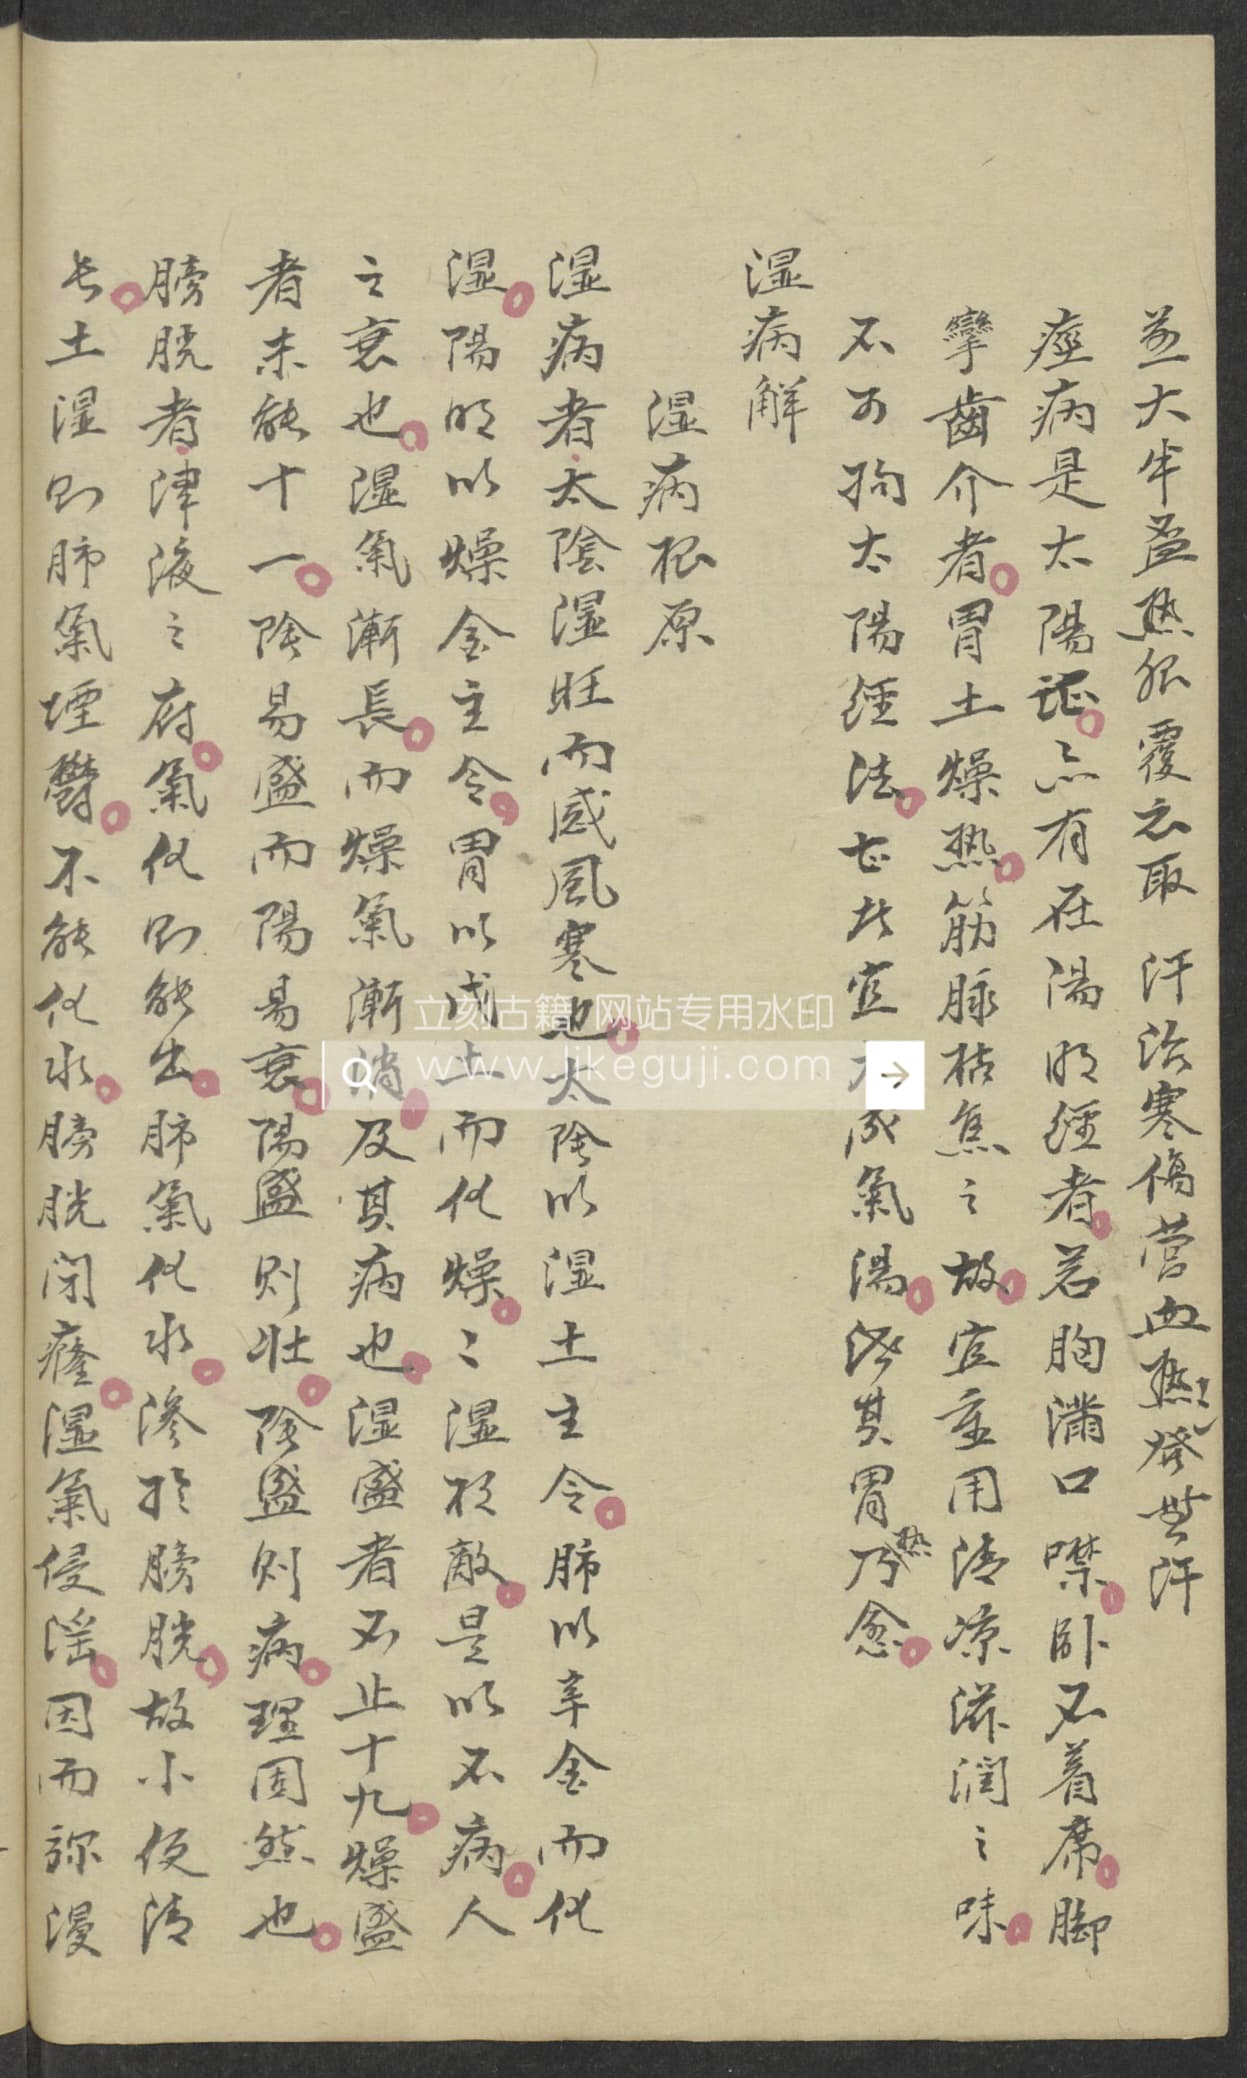 煎大半盃熱服覆衣取 汗治寒傷營血熱發無汗
痙病是太陽証亦有在陽明經者若胸滿口噤卧不着席脚
攣齒介者胃土燥热筋脉枯焦之故宜重用清凉滋潤之味
不可拘太陽經法也此宜大承氣湯泻其胃热乃愈
湿病解
湿病根原
湿病者太陰湿旺而感風寒也太陰以湿土主令肺以辛金而化
湿陽明以燥金主令胃以戊土而化燥〻湿相敵是以不病人
之衰也湿氣漸長而燥氣漸消及其病也湿盛者不止十九燥盛
者未能十一陰易盛而陽易衰陽盛则壮陰盛则病理固然也
膀胱者津液之府氣化则能出肺氣化水滲於膀胱故小便清
长土湿则肺氣堙鬱不能化水膀胱闭癃湿氣侵淫因而弥漫
立刻古籍 网站专用水印
www.jikeguji.com